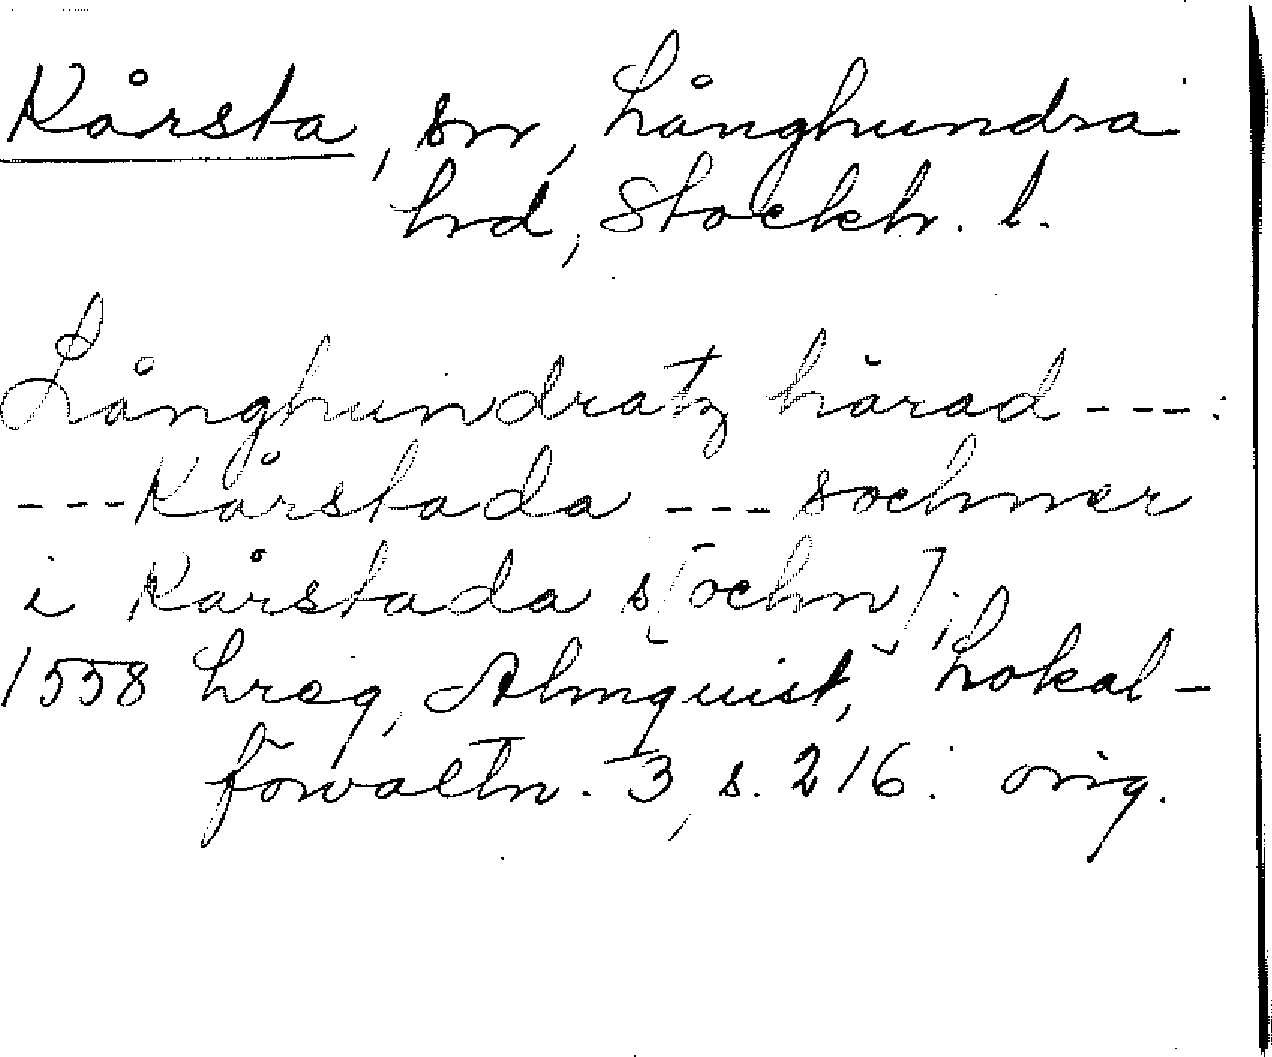 Kårsta, sn, Långhundra
hd, Stockh. l.
Långhundratz härad ---:
--- Kårstada --- sochner
i Kårstada s[ochn];
1558 hreg, Almquist, Lokal-
förvaltn. 3, s. 216. orig.